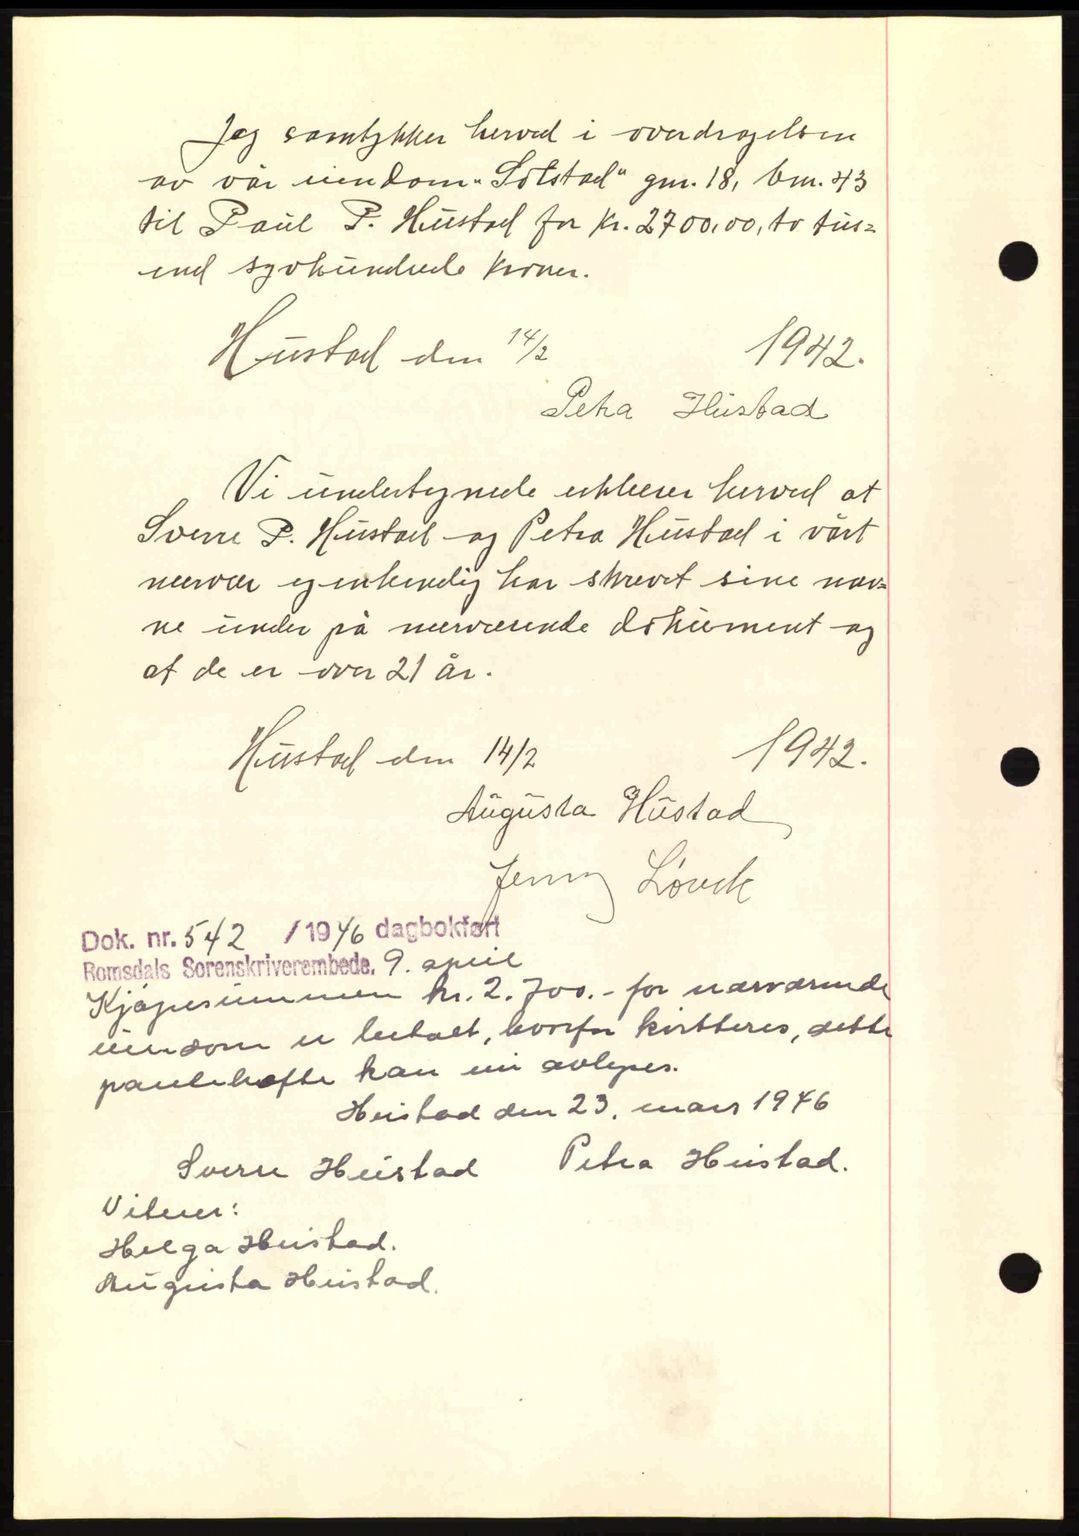 Jeg samtykker herved i overdragelsen
av vår eiendom "Solstad" gnr. 18, bnr. 43
til Paul P. Hustad for kr. 2700,00, to tus=
end syvhundrede kroner.
Hustad den 14/2 1942.
Petra Hustad
Vi undertegnede erklærer herved at
Sverre P. Hustad og Petra Hustad i vårt
nærvær egenhendig har skrevet sine nav=
ne under på nærværende dokument og
at de er over 21 år.
Hustad den 14/2 1942.
Augusta Hustad
Jenny Løvik
Dok. nr. 542 / 1946 dagbokført
Romsdals Sorenskriverembede. 9. april
Kjøpesummen kr. 2.700.- for nærværende
eiendom er betalt, hvorfor kvitteres, dette
panteheftet kan nu avlyses.
Hustad den 23. mars 1946
Sverre Hustad Petra Hustad.
Vitner:
Helga Hustad.
Augusta Hustad.